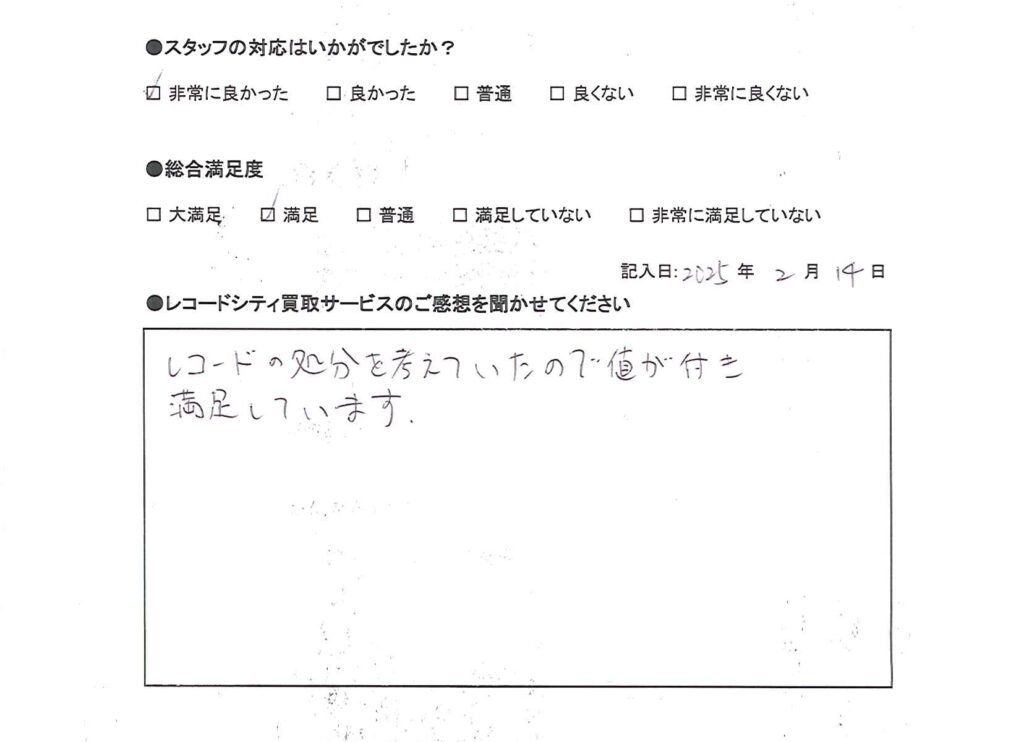 ●スタッフの対応はいかがでしたか？
☑ 非常に良かった □ 良かった □ 普通 □ 良くない □ 非常に良くない
●総合満足度
□ 大満足 ☑ 満足 □ 普通 □ 満足していない □ 非常に満足していない
記入日: 2025 年 2 月 14 日
●レコードシティ買取サービスのご感想を聞かせてください
レコードの処分を考えていたので値が付き
満足しています.